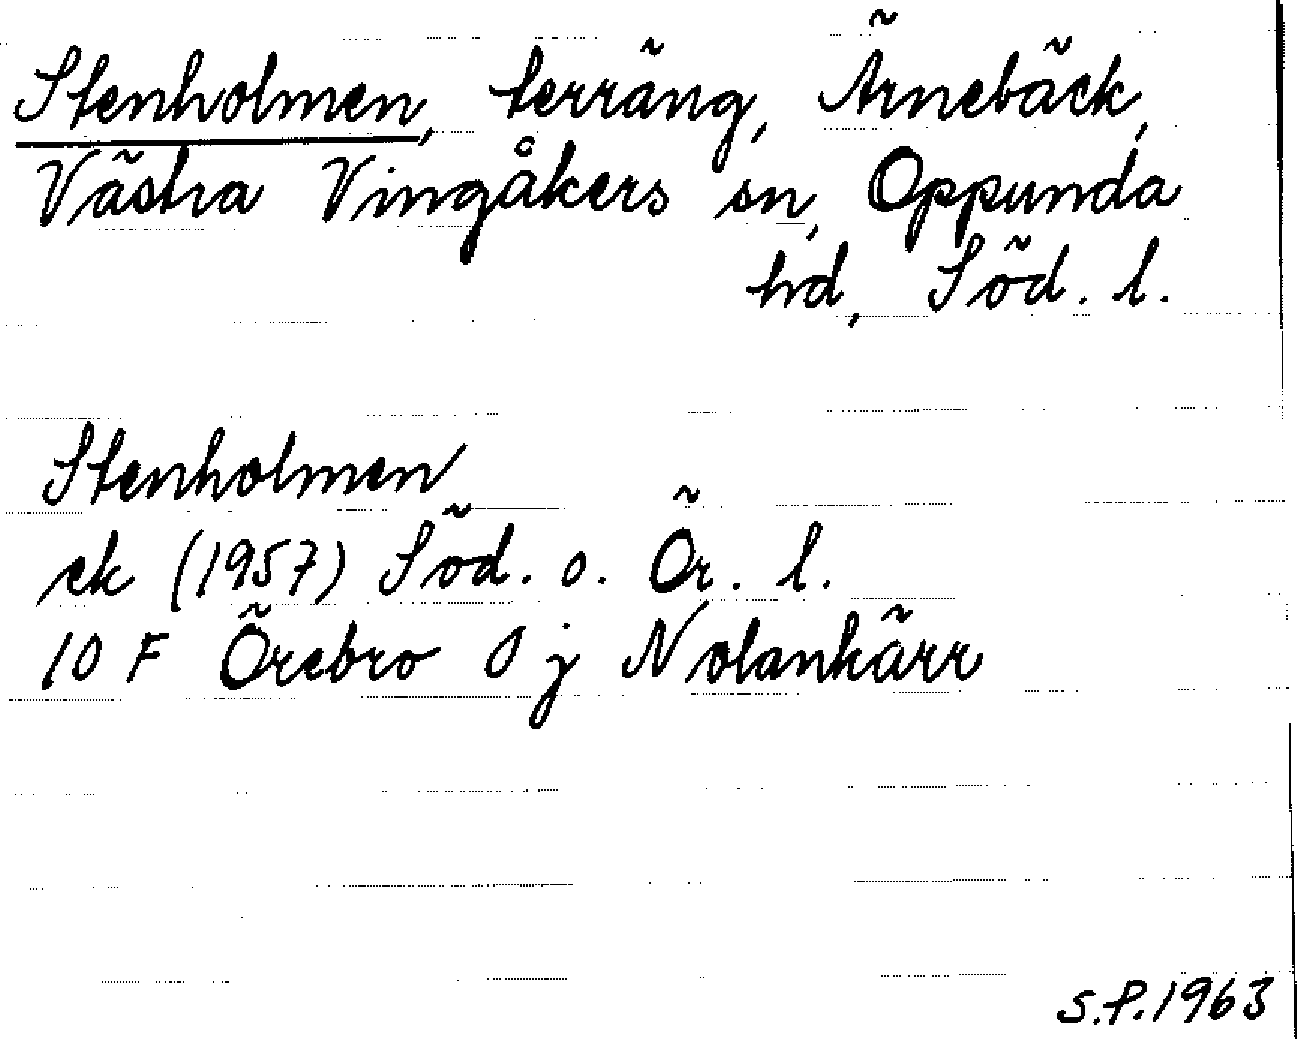 Stenholmen, terräng, Ärnebäck,
Västra Vingåkers sn, Oppunda
hd, Söd. l.
Stenholmen
ek (1957) Söd. o. Ör. l.
10 F Örebro 0 j Nolankärr
S.P. 1963